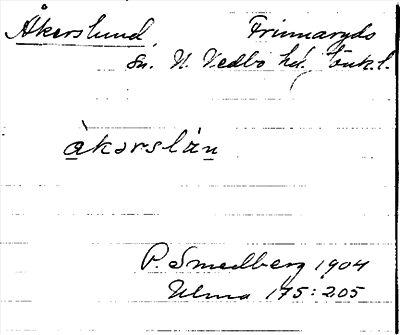 Åkerslund Frinnaryds
sn. N. Vedbo hd. Jönk.l.
åkərslún
P. Smedberg 1904
Ulma 175:205